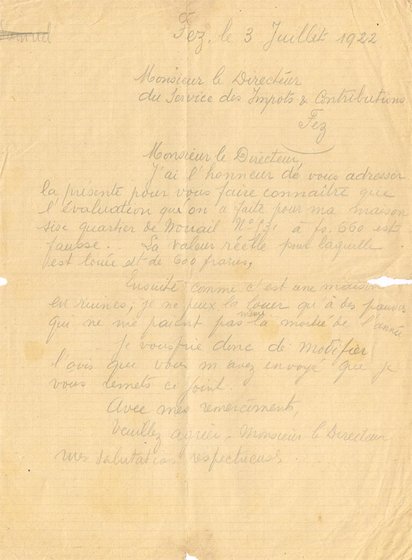 Fez, le 3 Juillet 1922
Monsieur le Directeur
du Service des Impots & Contributions
Fez
Monsieur le Directeur,
J'ai l'honneur de vous adresser
la présente pour vous faire connaître que
l'évaluation qu'on a faite pour ma maison
sise quartier de Nouail N° à fs. 660 est
fausse. La valeur réelle pour laquelle
est louée est de 600 francs,
Ensuite comme c'est une maison
en ruines, je ne peux la louer qu'à des pauvres
qui ne me paient pas même la moitié de l'année
Je vous prie donc de modifier
l'avis que vous m'avez envoyé que je
vous remets ci joint
Avec mes remerciments,
Veuillez agréer, Monsieur le Directeur
mes salutations respectueuses